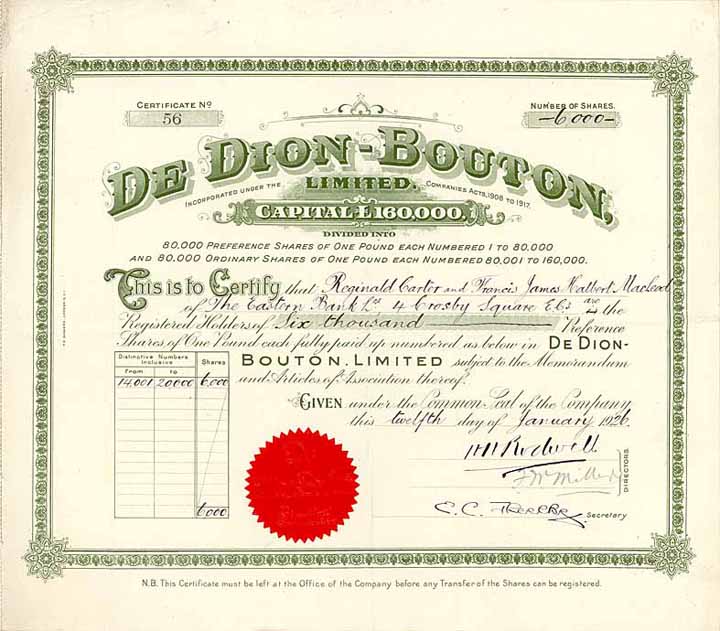 CERTIFICATE No
56
NUMBER OF SHARES.
-6000-
DE DION-BOUTON,
INCORPORATED UNDER THE
LIMITED.
COMPANIES ACTS, 1908 TO 1917.
CAPITAL £160,000,
DIVIDED INTO
80,000 PREFERENCE SHARES OF ONE POUND EACH NUMBERED 1 TO 80,000
AND 80,000 ORDINARY SHARES OF ONE POUND EACH NUMBERED 80,001 TO 160,000.
This is to Certify that Reginald Carter and Francis James Halbert MacLeod
of The Eastern Bank Ld 4 Crosby Square EC3 are the
Registered Holders of Six thousand Preference
Shares of One Pound each fully paid up numbered as below in DE DION-
BOUTON, LIMITED subject to the Memorandum
and Articles of Association thereof.
DISTINCTIVE NUMBERS INCLUSIVE
SHARES
FROM TO
14,001 20000 6,000
6000
GIVEN under the Common Seal of the Company
this twelfth day of January 1926.
DIRECTORS.
Secretary
N.B. This Certificate must be left at the Office of the Company before any Transfer of the Shares can be registered.